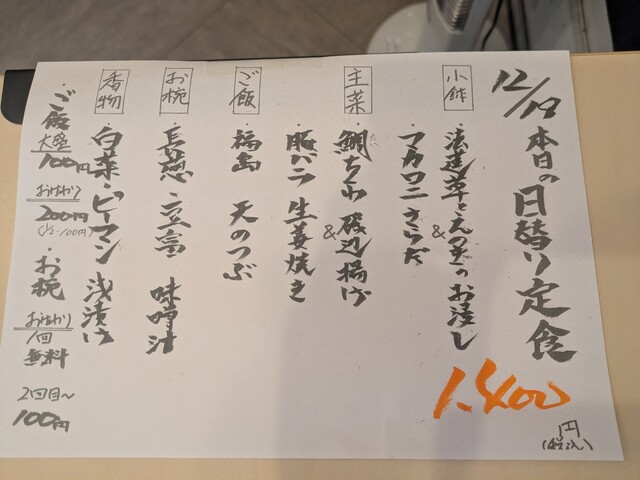 12/19 本日の日替り定食
1,400
円
(税込)
小鉢
・法蓮草とえのきのお浸し
&
・マカロニさらだ
主菜
・鯛ちくわ磯辺揚げ
たい
&
・豚バラ生姜焼き
ご飯
・福島 天のつぶ
お椀
・長葱・豆富 味噌汁
香物
・白菜・ピーマン浅漬け
・ご飯 大盛 100円
おかわり 200円
(1/2・100円)
・お椀 おかわり 1回 無料
2回目〜 100円